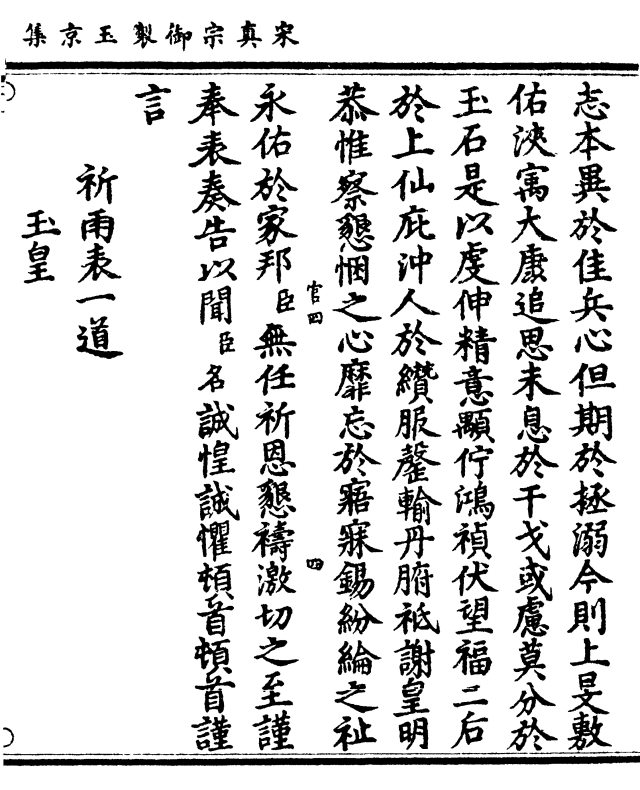 宋真宗御製玉京集
志本異於佳兵心但期於拯溺今則上旻敷
佑浹寓大康追思未息於干戈或慮莫分於
玉石是以虔伸精意顒佇鴻禎伏望福二后
於上仙庇沖人於纘服罄輸丹腑祗謝皇明
恭惟察懇悃之心靡忘於寤寐錫紛綸之祉
官四
四
永佑於家邦臣無任祈恩懇禱激切之至謹
奉表奏告以聞臣名誠惶誠懼頓首頓首謹
言
祈雨表一道
玉皇